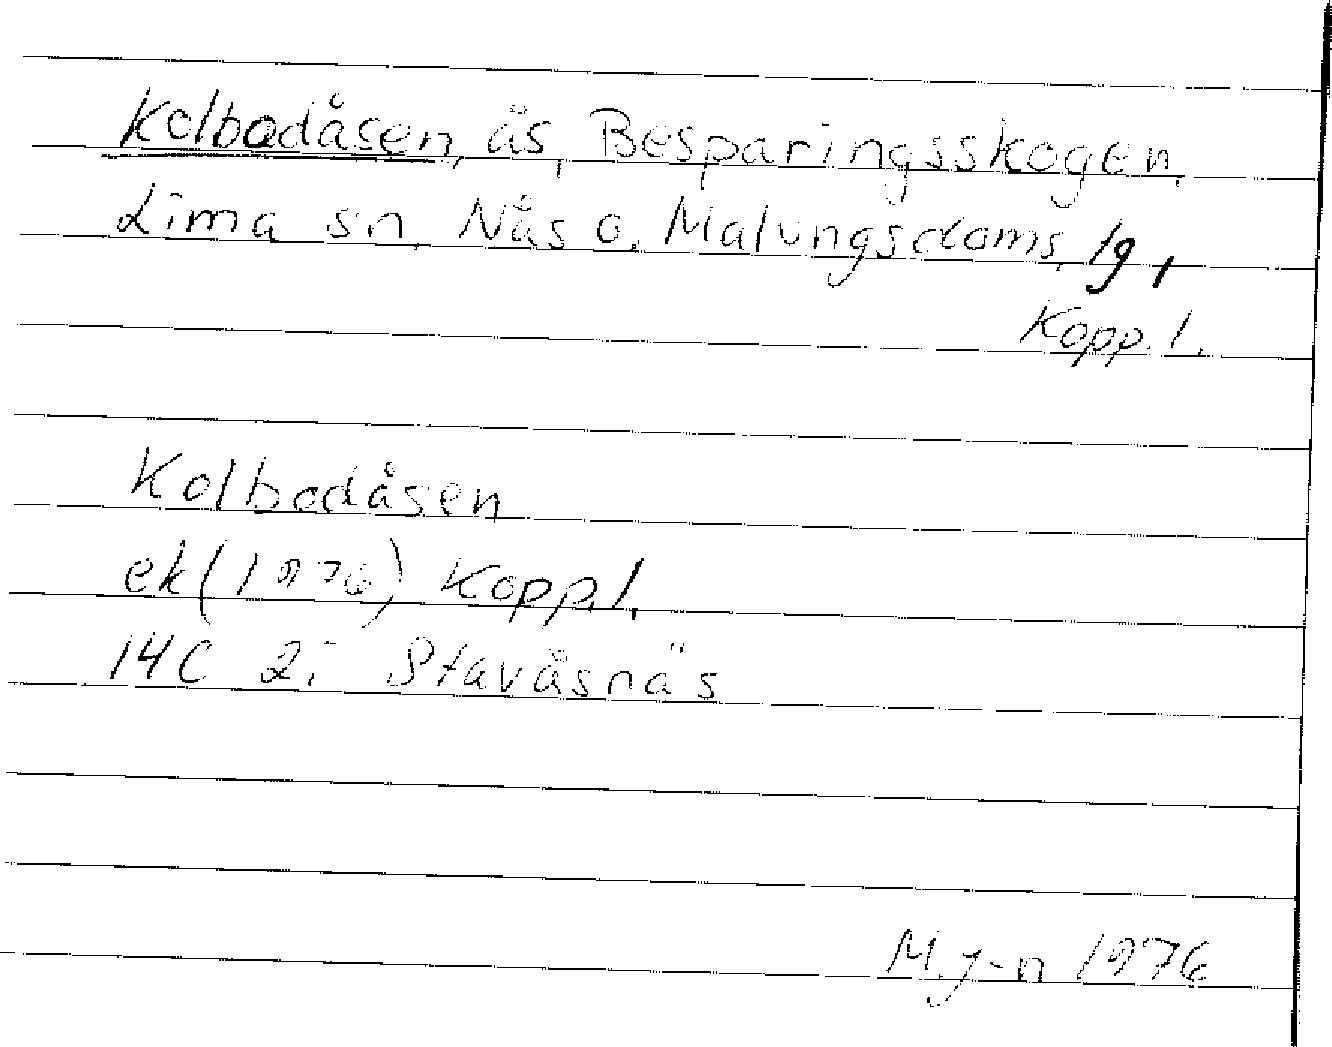 Kolbodåsen, ås, Besparingsskogen,
Lima sn, Nås o. Malungs doms. lg,
Kopp. l.
Kolbodåsen
ek (1976) Kopp.l.
14C 2i Stavåsnäs
M. J-n 1976